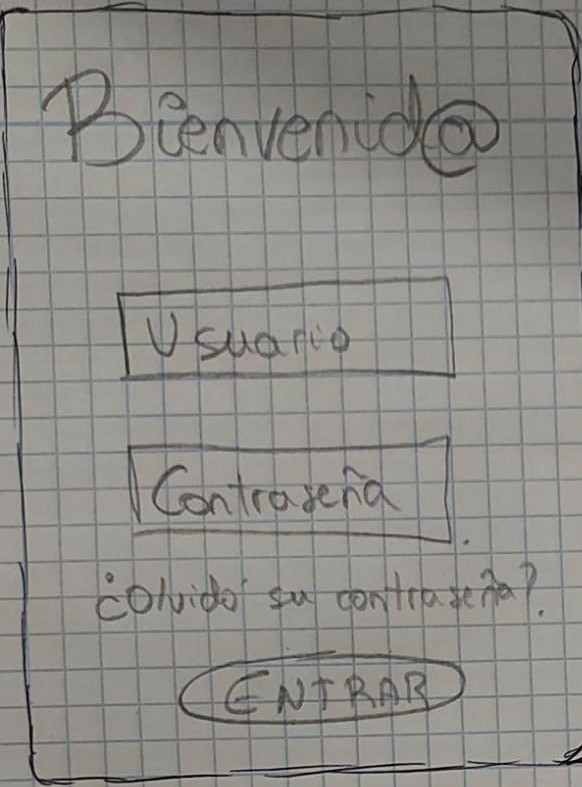 Bienvenid@
Usuario
Contraseña
¿Olvidó su contraseña?.
ENTRAR